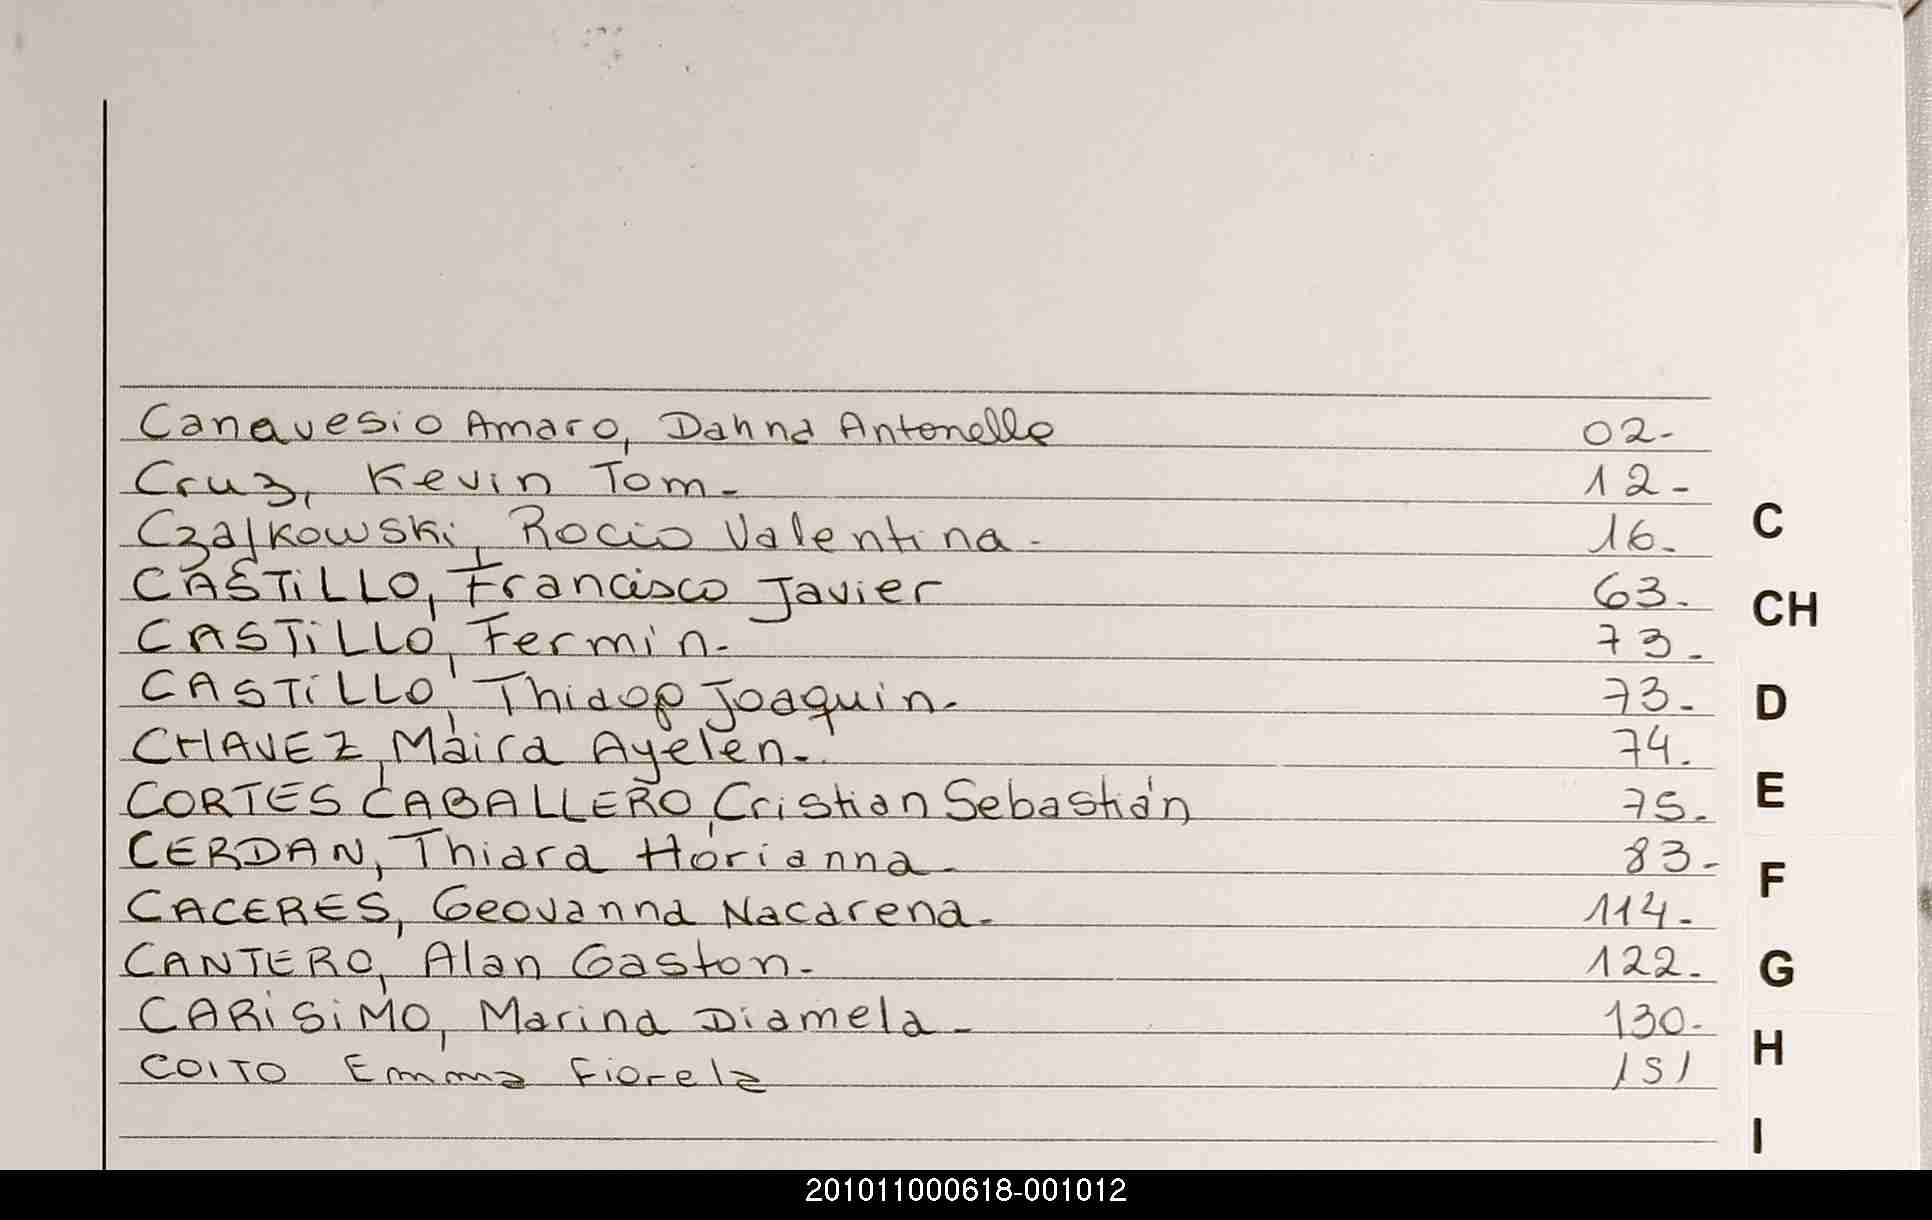 Canavesio Amaro, Dahna Antonella 02-
Cruz, Kevin Tom- 12-
Czajkowski, Rocio Valentina- 16-
C
CASTiLLO, Francisco Javier 63-
CH
CASTiLLO, Fermin- 73-
CASTiLLO, Joaquin- 73-
D
CHAVEZ, Maira Ayelén- 74.
CORTES CABALLERO, Cristian Sebastián 75.
E
CERDAN, Thiara 83-
F
CACERES, Geovanna Nacarena- 114-
CANTERO, Alan Gaston- 122-
G
CARiSiMO, Marina Diamela- 130-
H
COITO Emma Fiorela 151
I
201011000618-001012